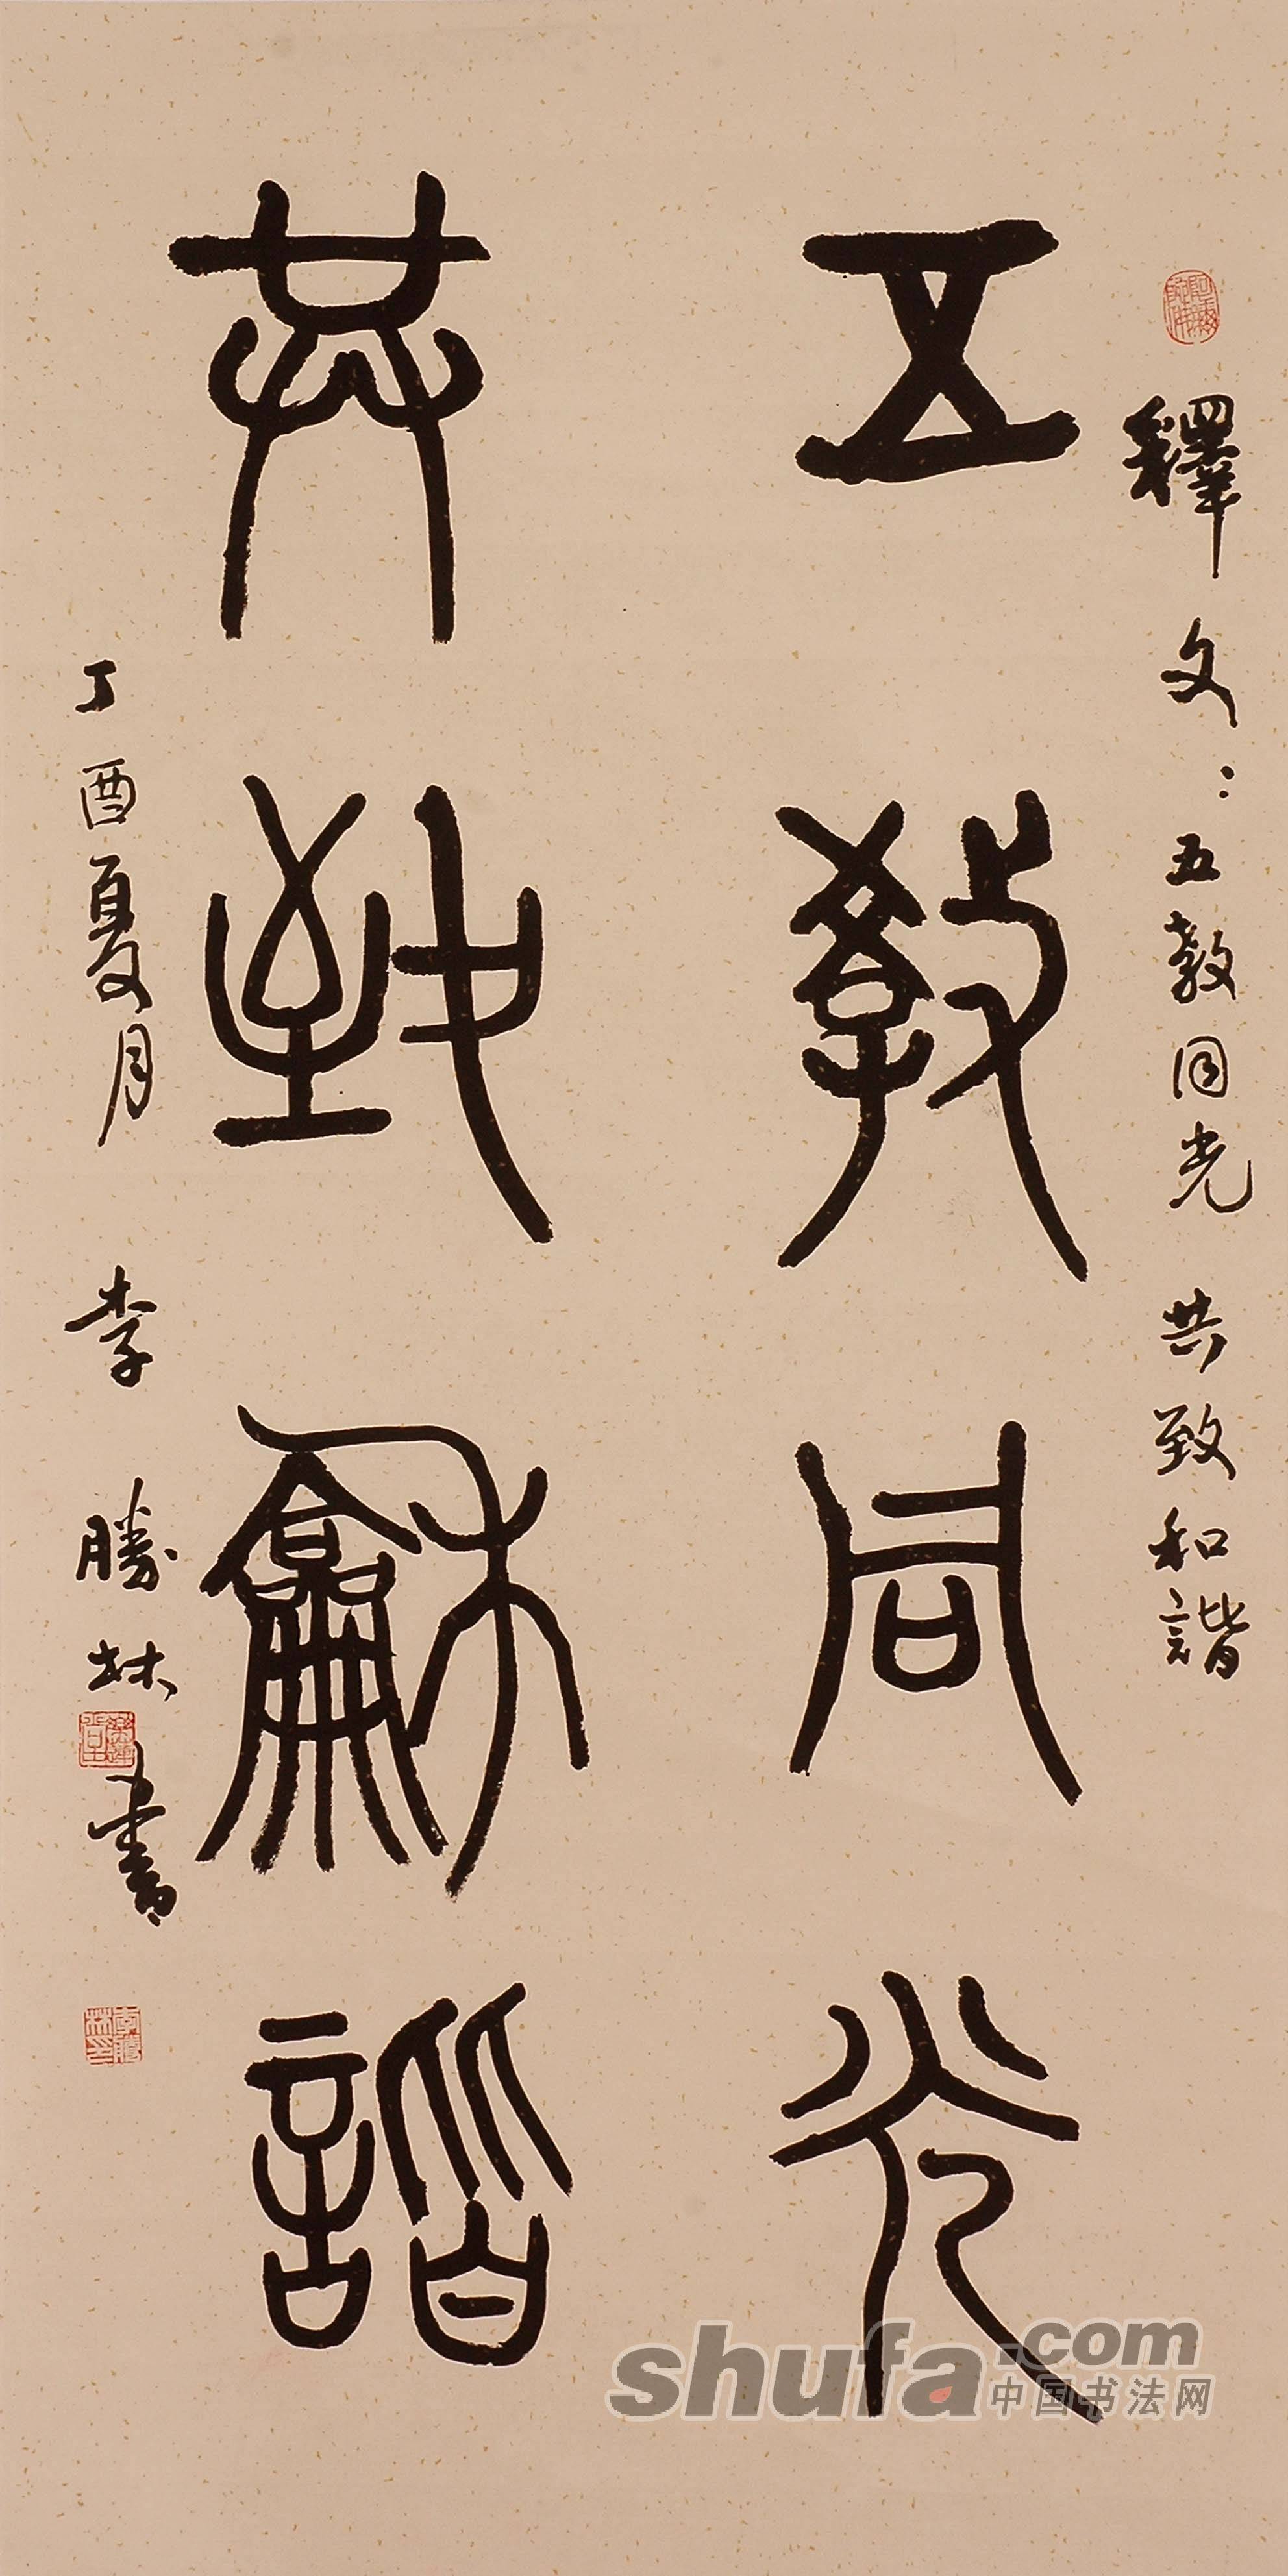 釋文：五教同光 共致和諧
五教同光
共致龢諧
丁酉夏月 李勝林書
李勝林印
shufa.com
中国书法网